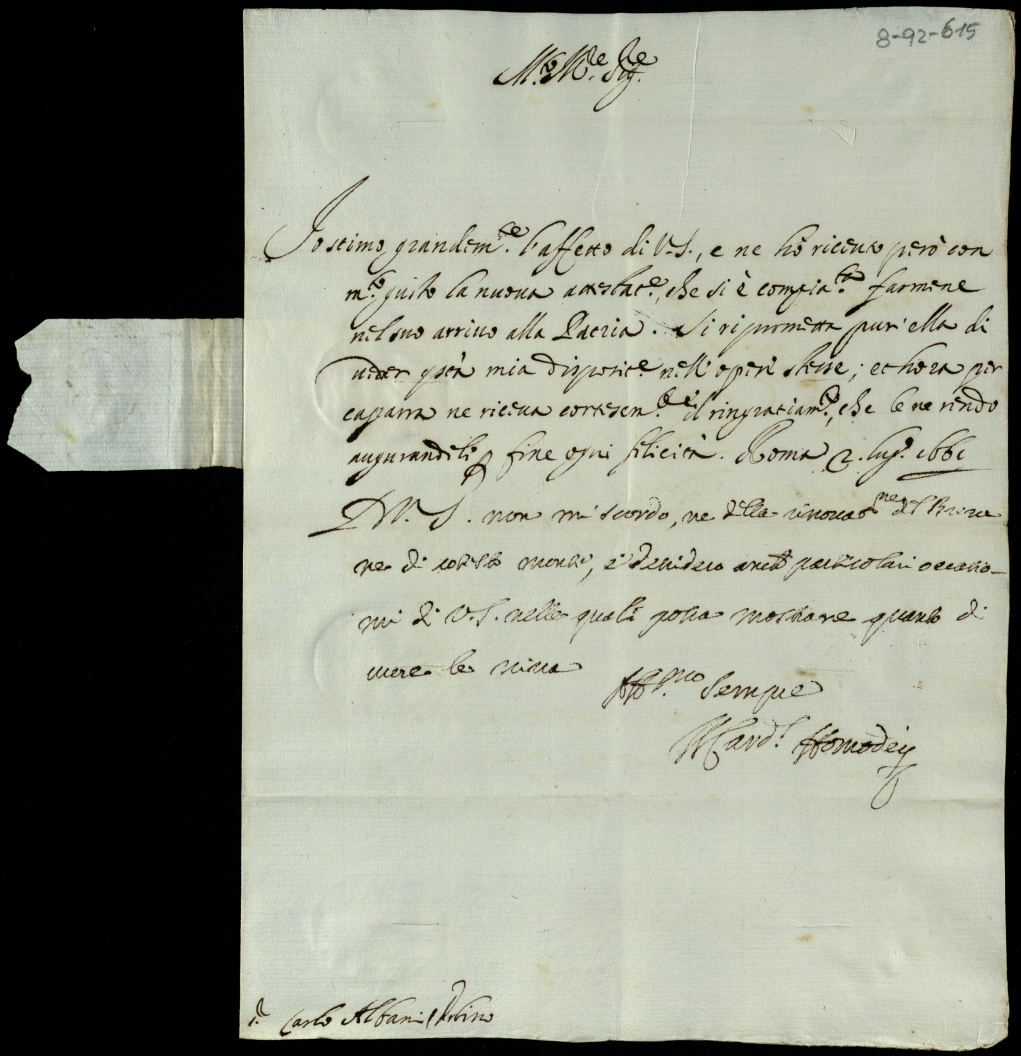 8-92-615
M.to Ill.re Sig.re
Io stimo grandem.te l'affetto di V.S., e ne hò riceuto però con
m.to gusto la nuova attestat.e, che si è compia.ta farmene
nel suo arrivo alla Patria. Si riprometta pur' ella di
veder q.sta mia disposit.e nell' opere stesse; et hora per
caparra ne riceva cortesem.te il ringratiam.to, che le ne rendo
augurandole p fine ogni felicità. Roma 2. lug.o 1661
D V. S. non mi scordo, ne della rinova.ne del Breve
ne di cotesto monte, e desidero anco particolari occasio-
ni di V.S. nelle quali possa mostrare quanto di
cuore la stima
Aff.mo Sempre
Il Card.l Homodei
S.r Carlo Albani Urbino